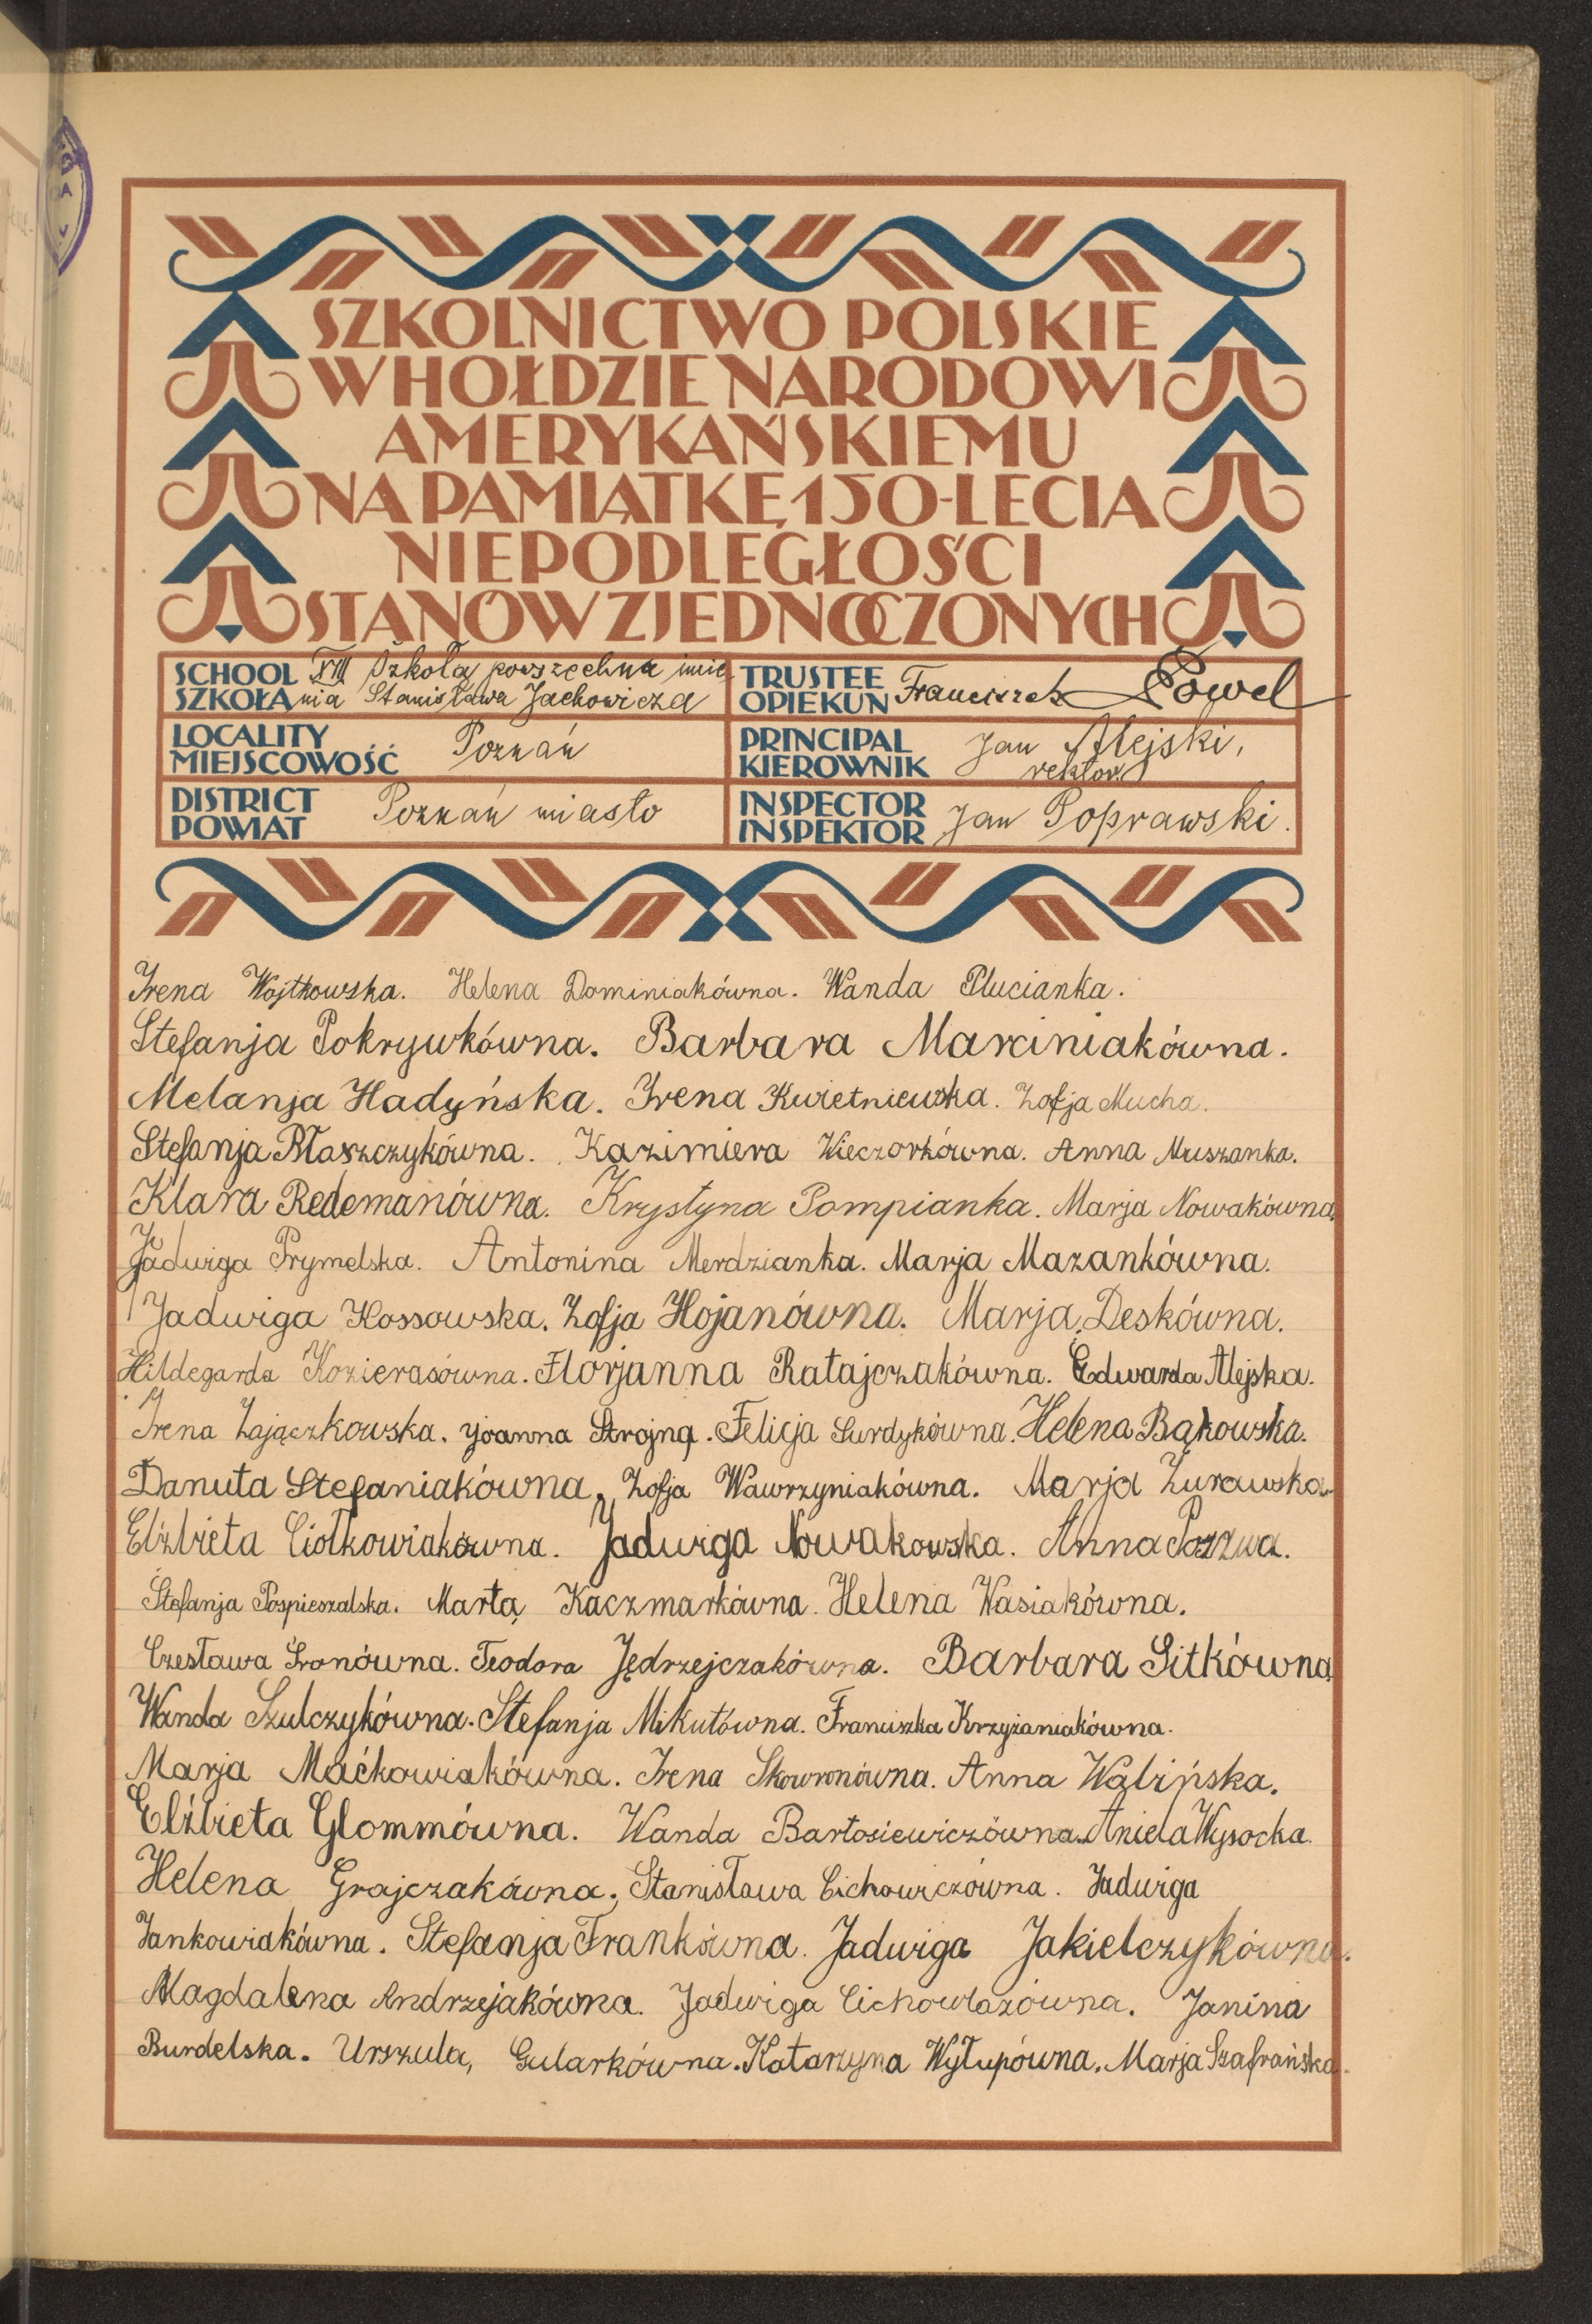 SZKOLNICTWO POLSKIE
W HOŁDZIE NARODOWI
AMERYKAŃSKIEMU
NA PAMIĄTKĘ 150-LECIA
NIEPODLEGŁOŚCI
STANÓW ZJEDNOCZONYCH
SCHOOL XIII Szkoła powszechna imie
SZKOŁA nia Stanisława Jachowicza
TRUSTEE
OPIEKUN Franciszek Powel
LOCALITY
MIEJSCOWOŚĆ Poznań
PRINCIPAL
KIEROWNIK Jan Alejski, rektor
DISTRICT
POWIAT Poznań miasto
INSPECTOR
INSPEKTOR Jan Poprawski.
Irena Wojtkowska. Helena Dominiakówna. Wanda Plucianka.
Stefanja Pokrywkówna. Barbara Marciniakówna.
Melanja Hadyńska. Irena Kwietniewska. Zofja Mucha.
Stefanja Błaszczykówna. Kazimiera Wieczorkówna. Anna Muszanka.
Klara Redemanówna. Krystyna Pompianka. Marja Nowakówna.
Jadwiga Prymelska. Antonina Merdzianka. Marja Mazankówna.
Jadwiga Kossowska. Zofja Hojanówna. Marja Deskówna.
Hildegarda Kozierasówna. Florjanna Ratajczakówna. Edwarda Alejska.
Irena Zajączkowska. Joanna Strojna. Felicja Surdykówna. Helena Bąkowska.
Danuta Stefaniakówna. Zofja Wawrzyniakówna. Marja Żurawska
Elżbieta Ciołkowiakówna. Jadwiga Nowakowska. Anna Pozzwa.
Stefanja Pospieszalska. Marta Kaczmarkówna. Helena Wasiakówna.
Czesława Sronówna. Teodora Jędrzejczakówna. Barbara Sitkówna
Wanda Szulczykówna. Stefanja Mikutówna. Franciszka Krzyżaniakówna.
Marja Maćkowiakówna. Irena Skowronówna. Anna Walińska.
Elżbieta Glommówna. Wanda Bartosiewiczówna. Aniela Wysocka.
Helena Grajczakówna. Stanisława Cichowiczówna. Jadwiga
Jankowiakówna. Stefanja Frankówna. Jadwiga Jakielczykówna.
Magdalena Andrzejakówna. Jadwiga Cichowlazówna. Janina
Burdelska. Urszula Gularkówna. Katarzyna Wytupówna. Marja Szafrańska.